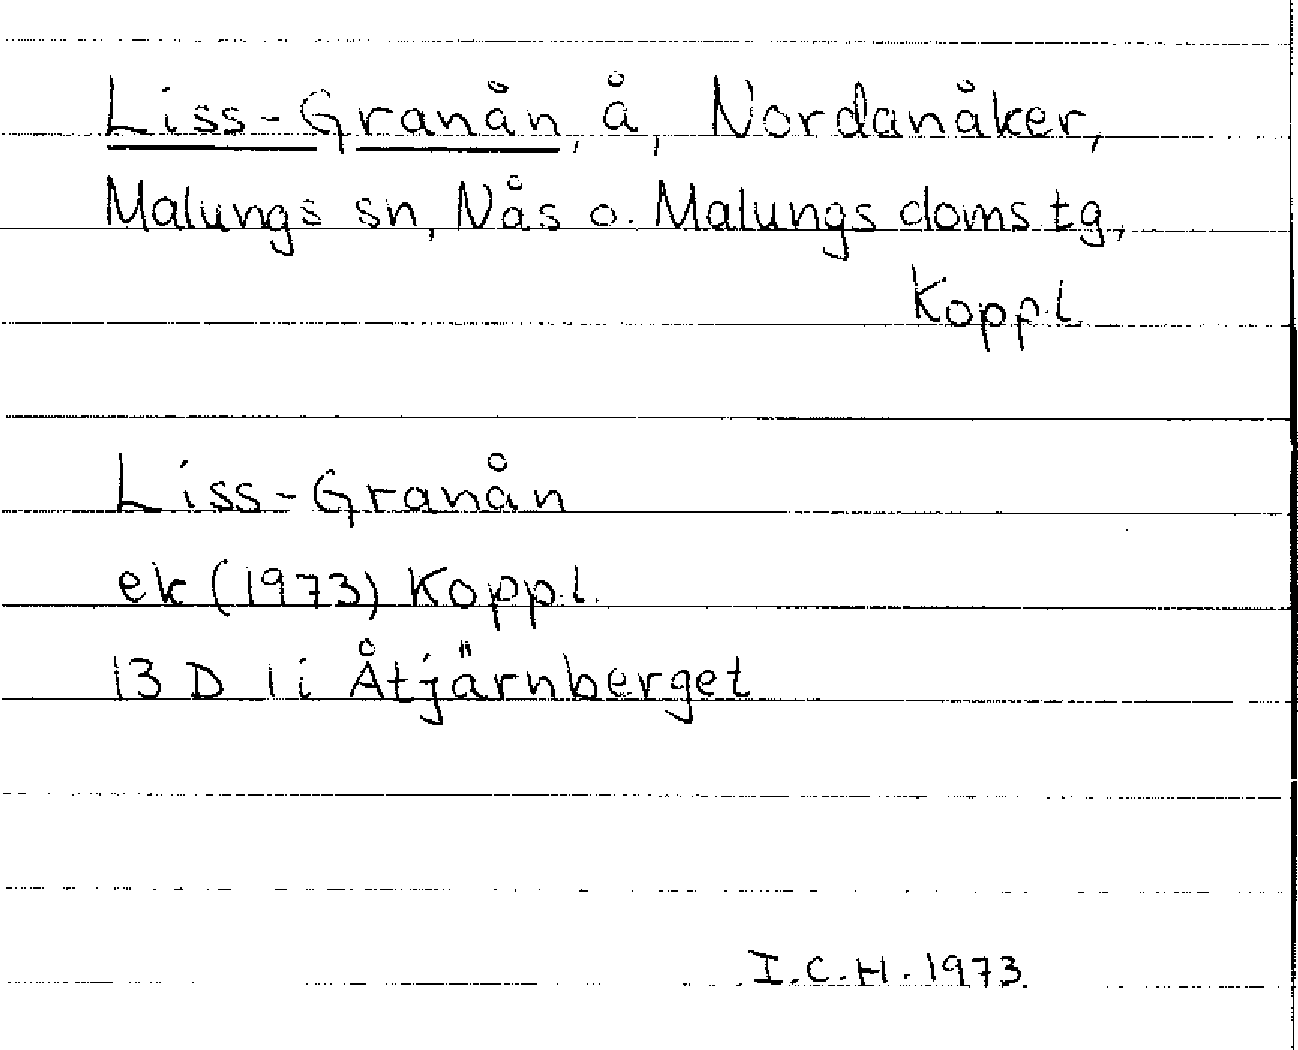 Liss-Granån, å, Nordanåker,
Malungs sn, Nås o. Malungs doms tg,
Koppl
Liss-Granån
ek (1973) Koppl.
13 D 1 i Åtjärnberget
I.C.H. 1973